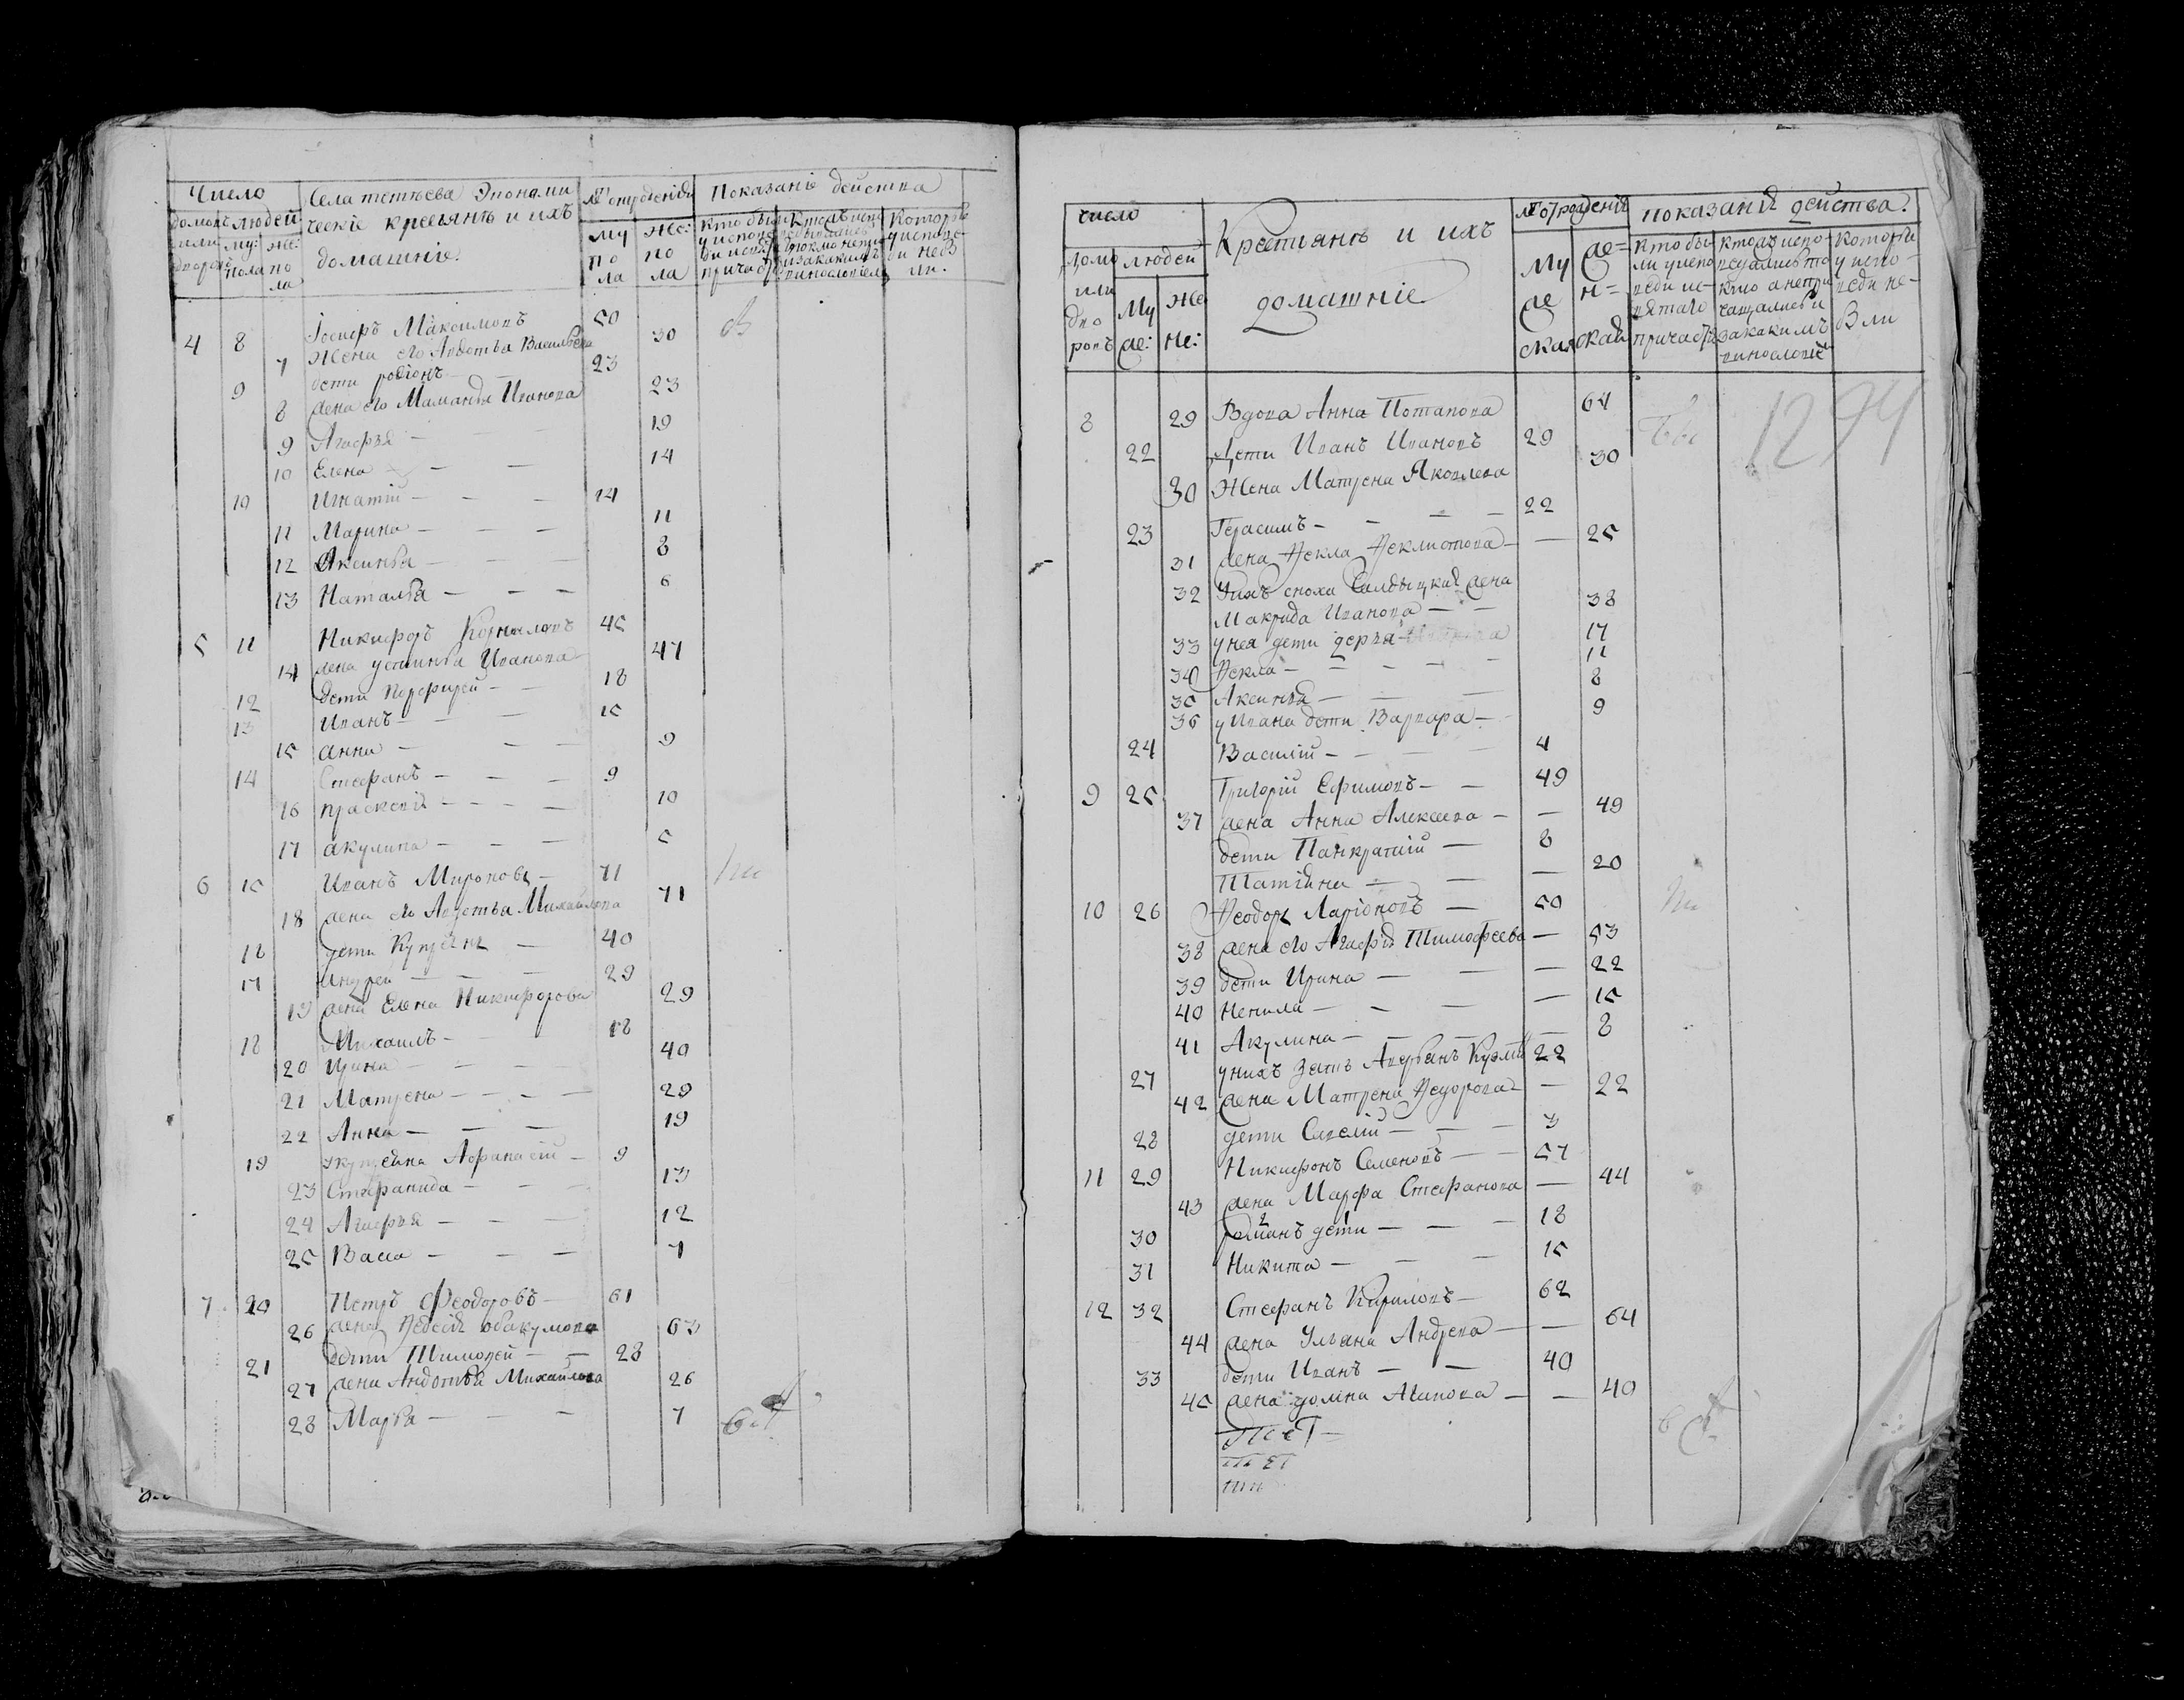 Число
Села тетъева Экономи
Лѣ отрожденія
Показаніе действа
домовъ людей
ческіе кресьянъ и ихъ
или му: же:
домашніе:
му же:
кто были
которые
по по
ла ла
4 8 Іосифъ Максимовъ 50
7 Жена его Авдотья Васильева 30
9 дети родіонъ 23
8 жена его Маланья Иванова 23
9 Агафья — 19
10 Елена — — 14
10 Игнатій — — 14
11 Марина — — — 11
12 Аксинья — — — 8
13 Наталья — — — 6
5 11 Никифоръ Корниловъ 45
14 жена устинья Иванова 47
12 дети Порфирей — — 18
13 Иванъ — — 15
15 анна — — — 9
14 Стефанъ — — — 9
16 праскевія — — — 10
17 акулина — — — 5
6 15 Иванъ Мироновъ — 71
18 жена его Авдотья Михайлова 71
16 дети Купріянъ — 40
17 Андрей — — — 29
19 жена Елена Никифорова 29
18 Михаилъ — 18
20 Ирина — — — 40
21 Матрена — — — 29
22 Анна — — — 19
19 укупреяна Афанасій — 9
23 Стефанида — — — 13
24 Агафья — — — 12
25 Васса — — — 7
7 20 Петръ Феодоровъ — 61
26 жена Федосія абакумова 63
21 дети Тимофей — — 28
27 жена Авдотья Михайлова 26
28 Марья — — — 7
число
Крестьянъ и ихъ
лѣ отрожденія
показанія действа.
домо людей
или
дво
ровъ
Му Же
же: не:
домашніе
Му же=
же н=
скаго ской
кто бы-
ли у испо-
веди и с-
вятаго
причастія
кто исповедались то
кмо а непри
чащались и
закакимъ
винословіемъ
которіи
у испо-
веди не-
были
8 29 Вдова Анна Потапова 64
1294
22 Дети Иванъ Ивановъ 29
30 Жена Матрена Яковлева 30
23 Герасимъ — — — 22
31 жена Фекла Феклистова — — 25
32 Уихъ сноха Салдыцкая жена
Макрида Иванова — — 38
33 у нея дети дарья 17
34 Фекла — — — — 11
35 Аксинья — — — 8
36 у Ивана дети Варвара — 9
24 Василій — — — — 4
9 25 Григорій Ефимовъ — — 49
37 жена Анна Алексеева — — 49
дети Панкратій — 8
Татіяна — — — 20
10 26 Феодоръ Ларіоновъ — 50
38 жена его Агафія Тимофеева — 53
39 дети Ирина — — — 22
40 Ненила — — — — 15
41 Акулина — — — — 8
27 у нихъ зять Андреянъ Кузмі 22
42 жена Матрена Федорова — 22
28 дети Савелій — — — 3
11 29 Никифоръ Семеновъ — — 57
43 жена Марфа Стефанова — 44
30 романъ дети — — — 18
31 Никита — — — 15
12 32 Стефанъ Кириловъ — 62
44 жена Ульяна Андреева — — 64
33 дети Иванъ — — 40
45 жена домна Акимова — — 40